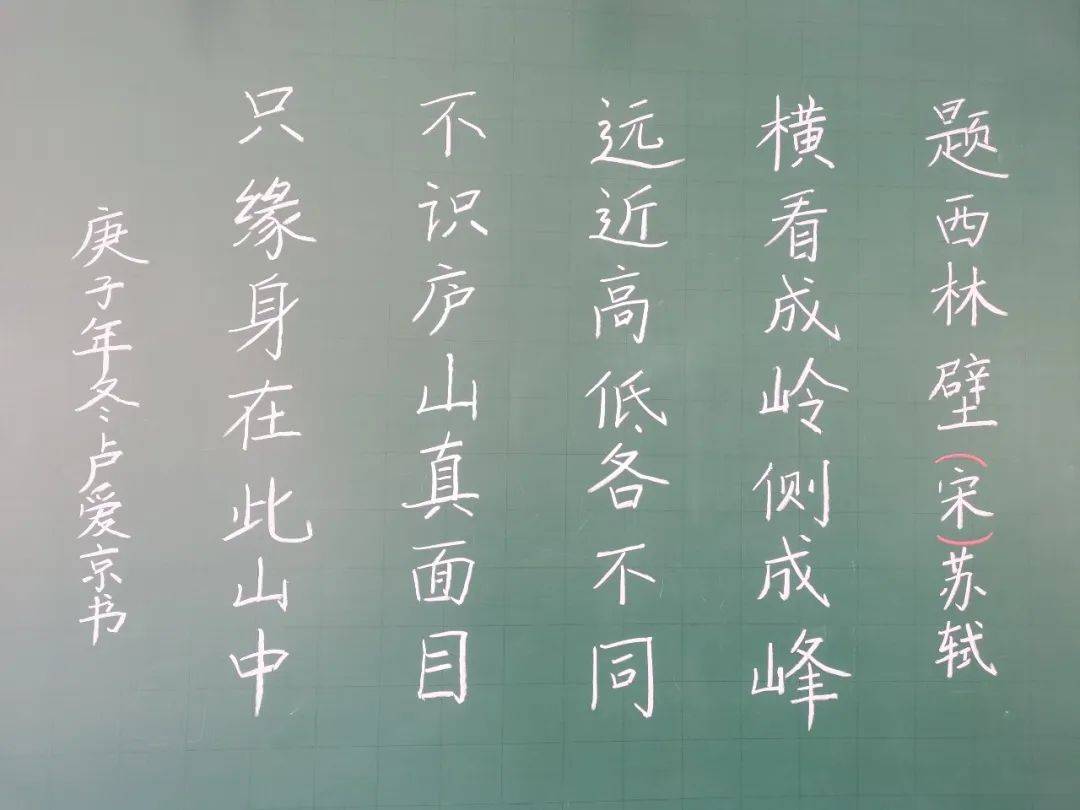 题西林壁(宋)苏轼
横看成岭侧成峰
远近高低各不同
不识庐山真面目
只缘身在此山中
庚子年冬卢爱京书